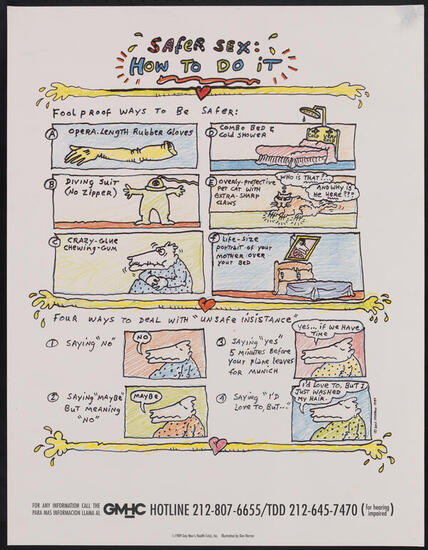 SAFER SEX:
HOW TO DO iT
FOOLPROOF WAYS TO BE SAFER:
A OPERA-LENGTH RUBBER GLOVES
B DIVING SUIT
(NO ZIPPER)
C CRAZY-GLUE
CHEWING-GUM
D COMBO BED &
COLD SHOWER
COLD VERY COLD
E OVERLY-PROTECTIVE
PET CAT WITH
EXTRA-SHARP
CLAWS
WHO IS THAT?..
AND WHY IS
HE HERE???
F LIFE-SIZE
PORTRAIT OF YOUR
MOTHER OVER
YOUR BED
FOUR WAYS TO DEAL WITH "UNSAFE INSISTANCE"
1 SAYING "NO"
NO
2 SAYING "MAYBE"
BUT MEANING
"NO"
MAYBE
3 SAYING "YES"
5 MINUTES BEFORE
YOUR PLANE LEAVES
FOR MUNICH
YES... IF WE HAVE
TIME
4 SAYING "I'D
LOVE TO, BUT..."
I'D LOVE TO, BUT I
JUST WASHED
MY HAIR.
FOR ANY INFORMATION CALL THE
PARA MAS INFORMACION LLAMA AL
GMHC HOTLINE 212-807-6655/TDD 212-645-7470 (for hearing impaired)
©1989 Gay Men's Health Crisis, Inc. Illustrated by